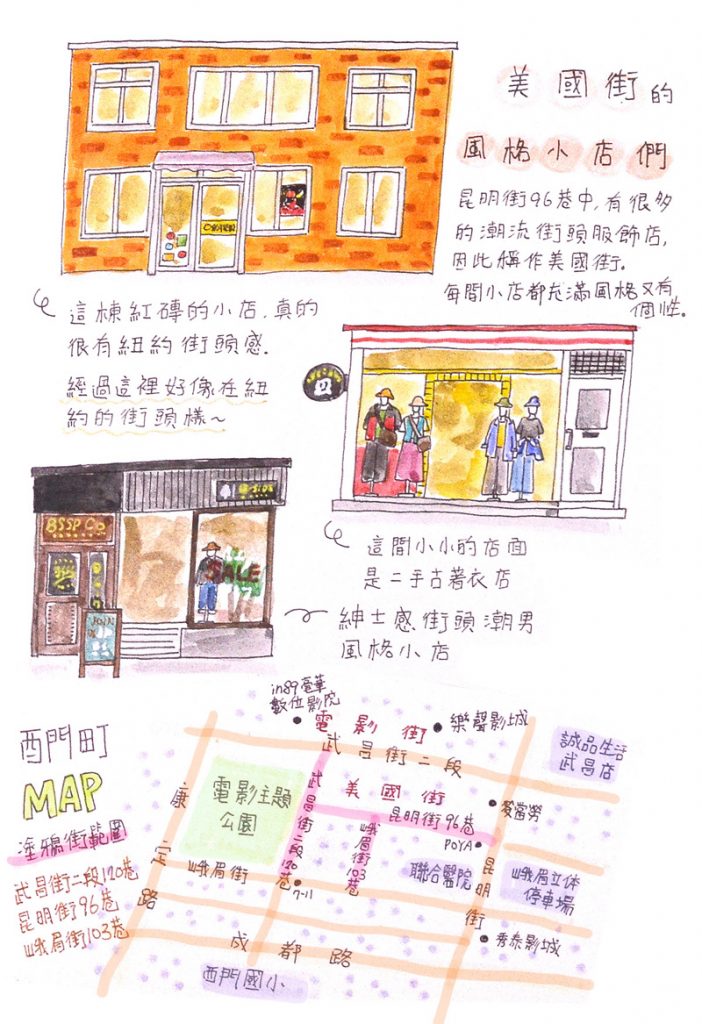 美國街的
風格小店們
昆明街96巷中,有很多
的潮流街頭服飾店,
因此稱作美國街.
每間小店都充滿風格又有
個性。
這棟紅磚的小店,真的
很有紐約街頭感.
經過這裡好像在紐
約的街頭樣~
BSSP Co
SALE
這間小小的店面
是二手古著衣店
紳士感街頭潮男
風格小店
西門町
MAP
塗鴉街範圍
武昌街二段120巷
昆明街96巷
峨眉街103巷
in89豪華
數位影院
電影街
樂聲影城
武昌街二段
誠品生活
武昌店
康定路
電影主題
公園
武昌街二段120巷
美國街
昆明街96巷
麥當勞
POYA
峨眉街103巷
聯合醫院
昆明街
峨眉立体
停車場
峨眉街
7-11
秀泰影城
成都路
西門國小